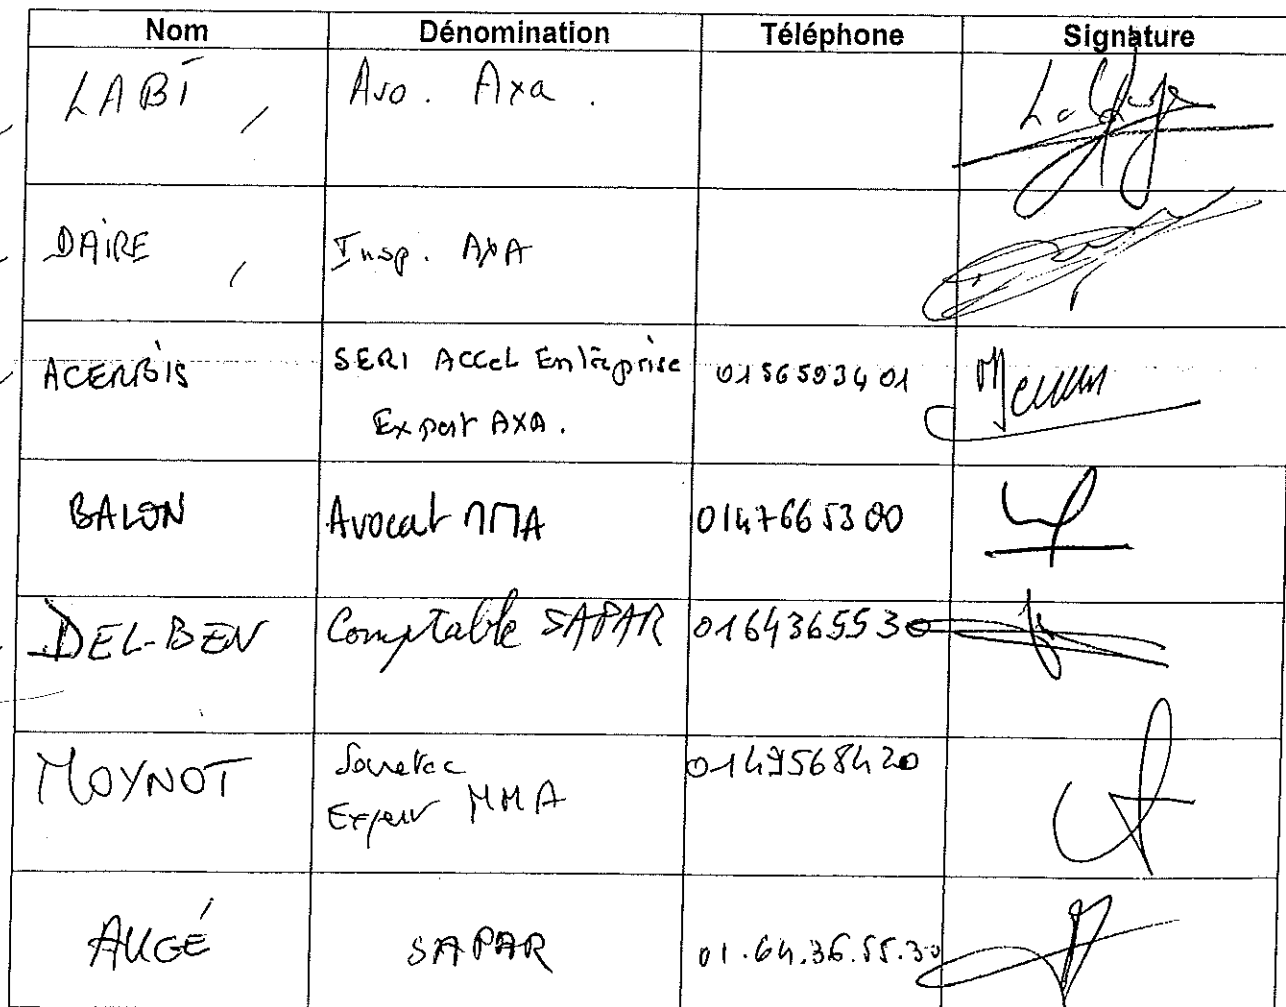 Nom Dénomination Téléphone Signature
LABI , Avo. Axa .
DAIRE , Insp. AXA
ACERBIS SERI ACCEL Entreprise 0156593401
Expert AXA.
BALON Avocat MMA 0147665300
DEL-BEN Comptable SAPAR 0164365530
MOYNOT 0149568420
Expert MMA
AUGÉ SAPAR 01.64.36.55.30